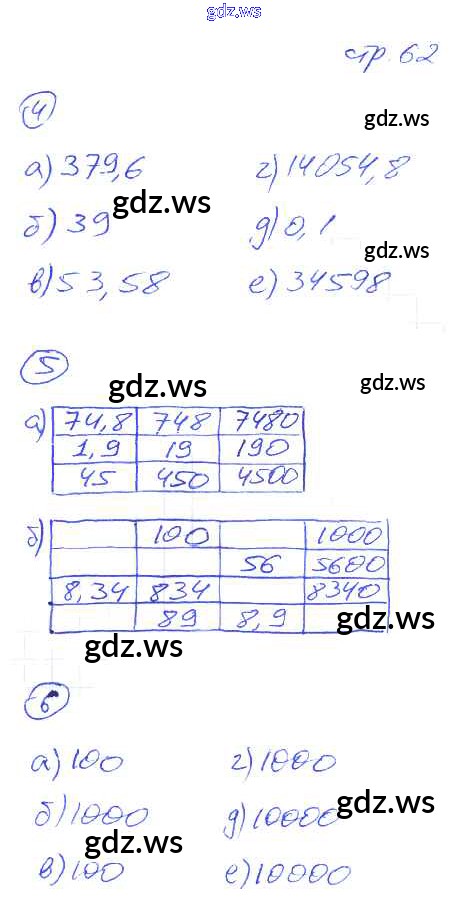 gdz.ws
стр. 62
4 gdz.ws
а) 379,6 г) 14054,8
gdz.ws
б) 39 д) 0,1
gdz.ws
в) 53,58 е) 34598
5
gdz.ws gdz.ws
а) 74,8 748 7480
1,9 19 190
45 450 4500
б) 100 1000
56 5600
8,34 834 8340
89 8,9 gdz.ws
gdz.ws
6
а) 100 г) 1000
gdz.ws
б) 1000 д) 10000
gdz.ws
в) 100 е) 10000